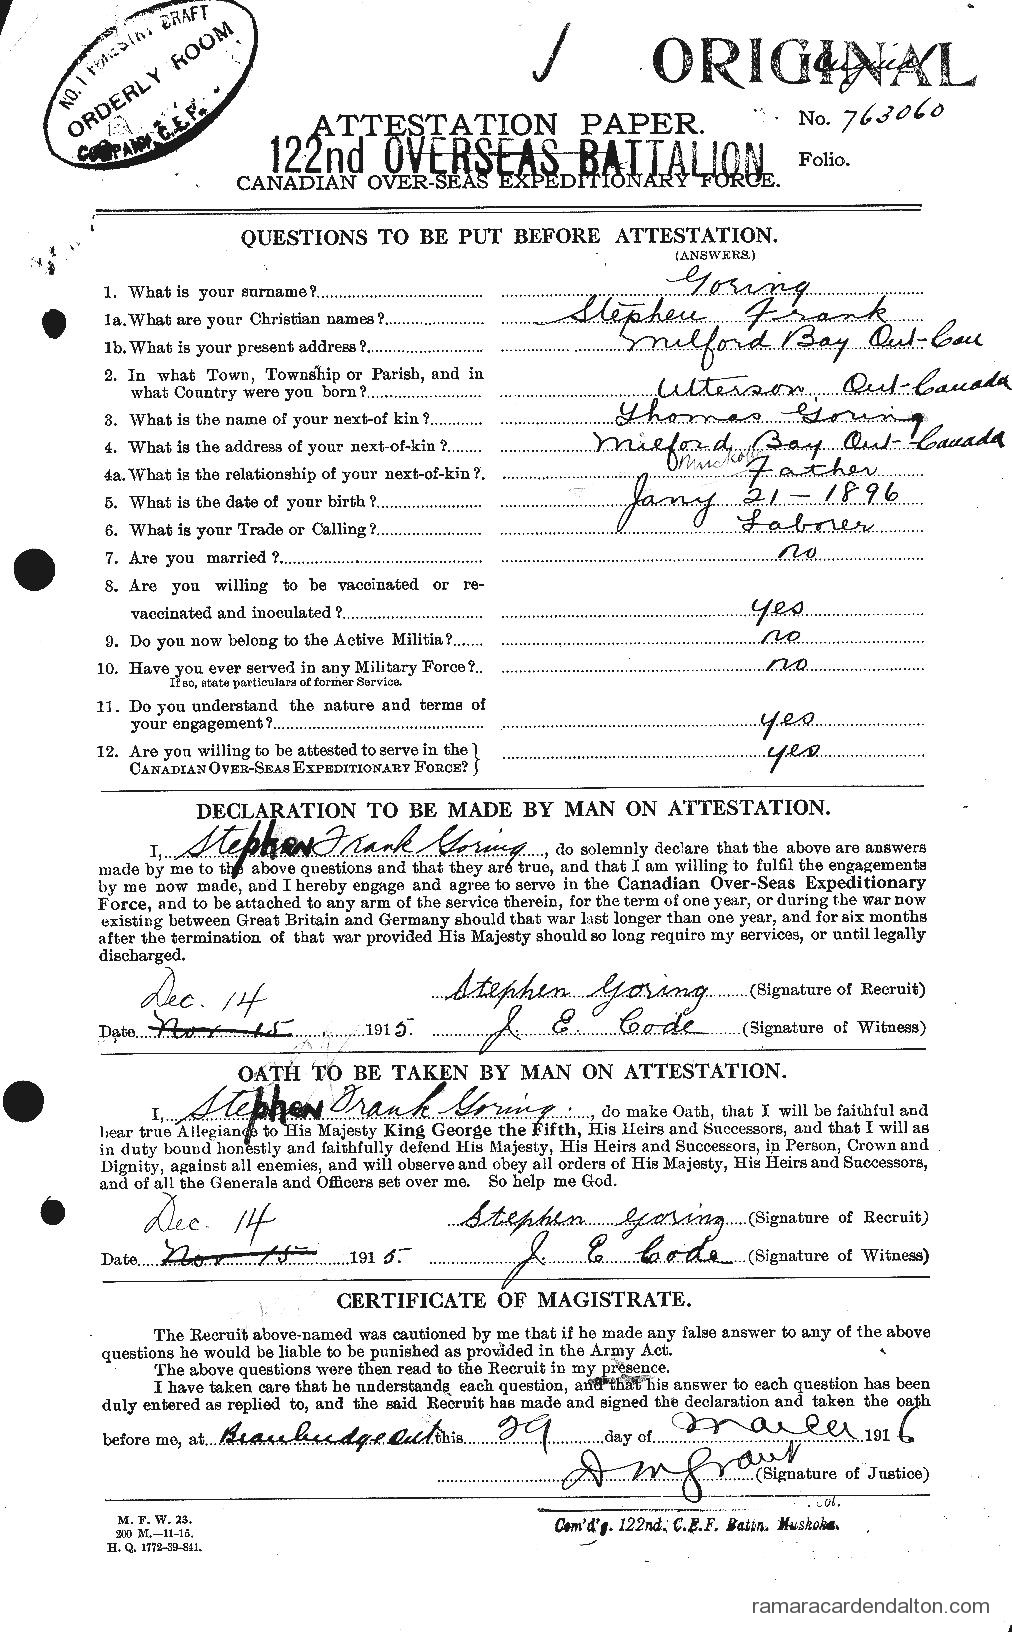 NO. 1 FORESTRY DRAFT
ORDERLY ROOM
COMPANY, C.E.F.
ORIGINAL
ATTESTATION PAPER.
No. 763060
122nd OVERSEAS BATTALION
Folio.
CANADIAN OVER-SEAS EXPEDITIONARY FORCE.
QUESTIONS TO BE PUT BEFORE ATTESTATION.
(ANSWERS.)
1. What is your surname? Goring
1a. What are your Christian names? Stephen Frank
1b. What is your present address? Milford Bay Ont-Can
2. In what Town, Township or Parish, and in
what Country were you born? Utterson, Ont-Canada
3. What is the name of your next-of kin? Thomas Goring
4. What is the address of your next-of-kin? Milford Bay Ont-Canada
Muskoka
4a. What is the relationship of your next-of-kin? Father
5. What is the date of your birth? Jany 21-1896
6. What is your Trade or Calling? Laborer
7. Are you married? no
8. Are you willing to be vaccinated or re-
vaccinated and inoculated? yes
9. Do you now belong to the Active Militia? no
10. Have you ever served in any Military Force? no
If so, state particulars of former Service.
11. Do you understand the nature and terms of
your engagement? yes
12. Are you willing to be attested to serve in the
CANADIAN OVER-SEAS EXPEDITIONARY FORCE? yes
DECLARATION TO BE MADE BY MAN ON ATTESTATION.
I, Stephen Frank Goring, do solemnly declare that the above are answers
made by me to the above questions and that they are true, and that I am willing to fulfil the engagements
by me now made, and I hereby engage and agree to serve in the Canadian Over-Seas Expeditionary
Force, and to be attached to any arm of the service therein, for the term of one year, or during the war now
existing between Great Britain and Germany should that war last longer than one year, and for six months
after the termination of that war provided His Majesty should so long require my services, or until legally
discharged.
Dec. 14 Stephen Goring (Signature of Recruit)
Date Nov 15 1915. J. E. Code (Signature of Witness)
OATH TO BE TAKEN BY MAN ON ATTESTATION.
I, Stephen Frank Goring, do make Oath, that I will be faithful and
bear true Allegiance to His Majesty King George the Fifth, His Heirs and Successors, and that I will as
in duty bound honestly and faithfully defend His Majesty, His Heirs and Successors, in Person, Crown and
Dignity, against all enemies, and will observe and obey all orders of His Majesty, His Heirs and Successors,
and of all the Generals and Officers set over me. So help me God.
Dec. 14 Stephen Goring (Signature of Recruit)
Date Nov 15 1915. J. E Code (Signature of Witness)
CERTIFICATE OF MAGISTRATE.
The Recruit above-named was cautioned by me that if he made any false answer to any of the above
questions he would be liable to be punished as provided in the Army Act.
The above questions were then read to the Recruit in my presence.
I have taken care that he understands each question, and that his answer to each question has been
duly entered as replied to, and the said Recruit has made and signed the declaration and taken the oath
before me, at Bracebridge Ont this 29 day of March 1916
D M Grant (Signature of Justice)
Col.
M. F. W. 23.
200 M.-11-15.
H. Q. 1772-39-841.
Com'd'g. 122nd. C.E.F. Battn. Muskoka.
ramaracardendalton.com